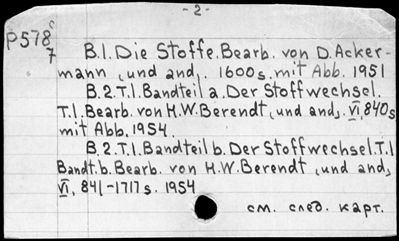 - 2 -
P578 c/7
B.1. Die Stoffe. Bearb. von D. Acker-
mann (und and). 1600 s. mit Abb. 1951
B.2.T.1. Bandteil a. Der Stoffwechsel.
T.1. Bearb. von H.W. Berendt (und and). VI, 840 s
mit Abb. 1954.
B.2.T.1. Bandteil b. Der Stoffwechsel. T.1
Bandt. b. Bearb. von H.W. Berendt (und and)
VI, 841-1717 s. 1954
см. след. карт.